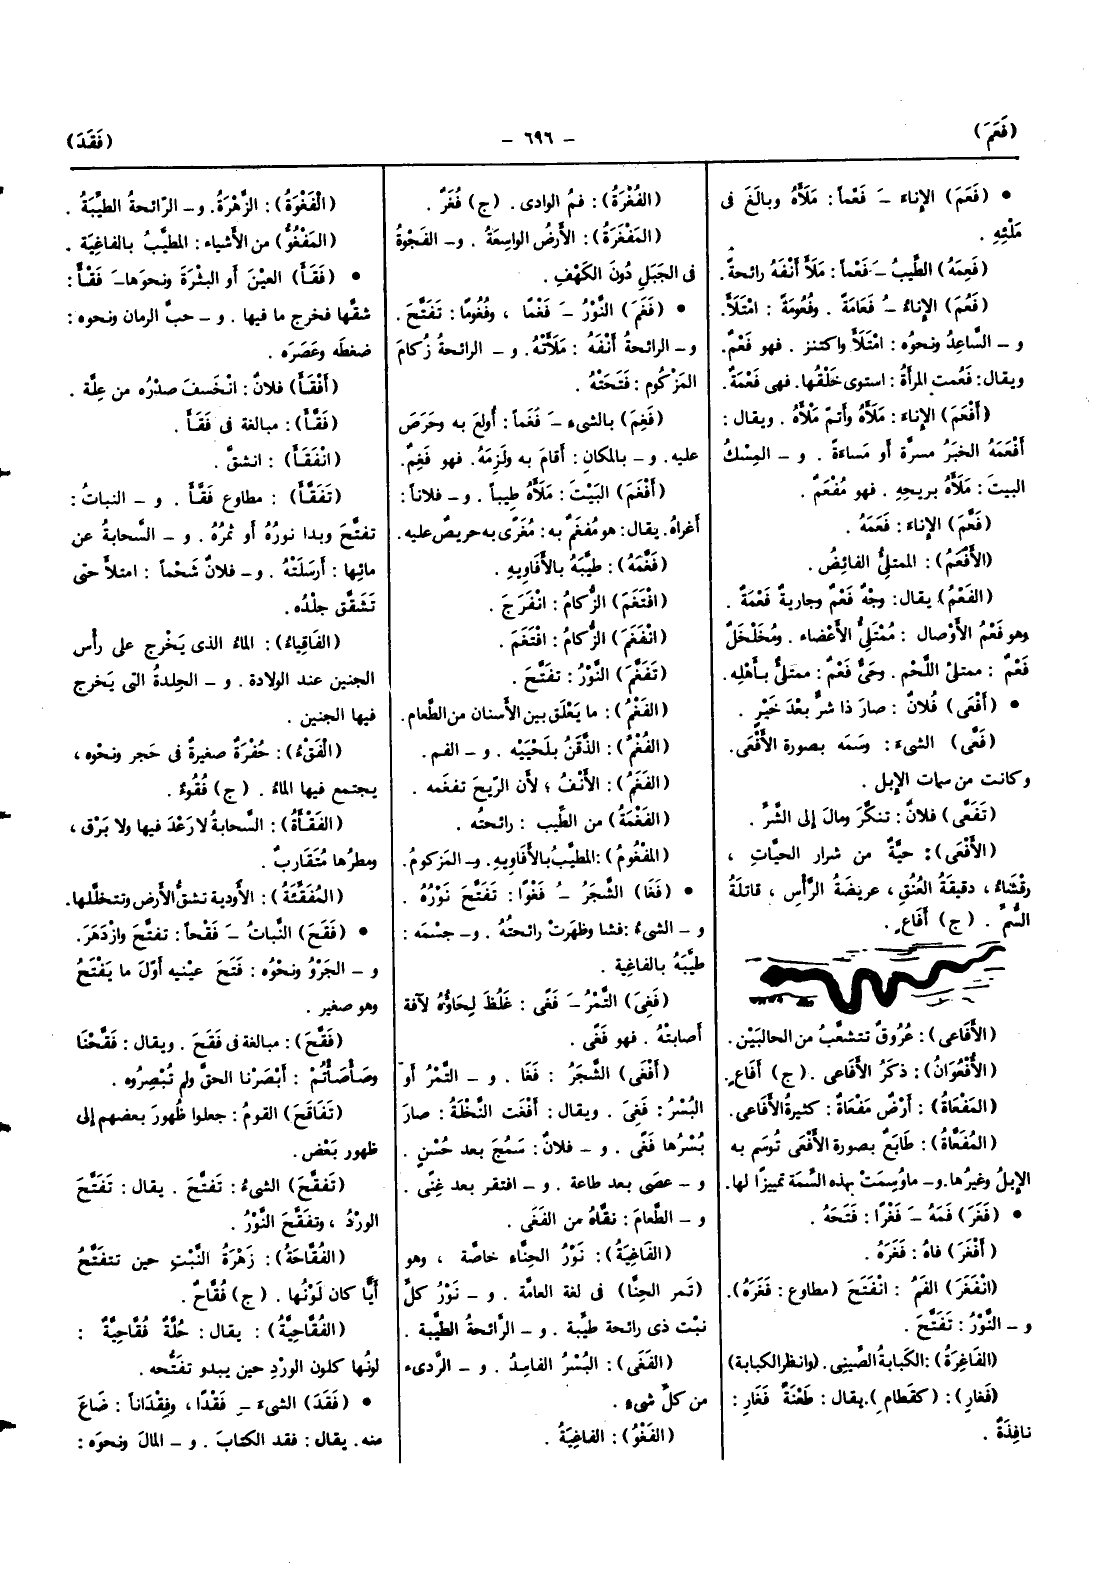 (فَعَمَ)
- ٦٩٦ -
(فَقَدَ)
• (فَعَمَ) الإناء ـَ فَعْماً: مَلَأَهُ وبالَغَ فى
مَلْئِهِ .
(فَعِمَهُ) الطِّيبُ ـَ فَعْماً: مَلَأَ أَنْفَهُ رائحةً.
(فَعُمَ) الإناءُ ـُ فَعَامَةً . وفُعُومَةً : امْتَلَأَ.
و – السَّاعِدُ ونحوُه : امْتَلَأَ واكتنز . فهو فَعْمٌ.
ويقال: فَعُمت المرأةُ : استوى خَلْقُها. فهى فَعْمَةٌ.
(أَفْعَمَ) الإناءَ: مَلَأَهُ وأتمّ مَلْأَهُ . ويقال :
أَفْعَمَهُ الخبَرُ مسرَّة أو مَساءَةً . و – المِسْكُ
البيتَ : مَلَأَهُ بريحِهِ . فهو مُفْعَمٌ .
(فَعَّمَ) الإناءَ : فَعَمَهُ .
(الأَفْعَمُ) : الممتلئُ الفائِضُ .
(الفَعْمُ) يقال: وجْهٌ فَعْمٌ وجاريةٌ فَعْمَةٌ .
وهو فَعْمُ الأَوْصال : مُمْتَلِئُ الأَعْضاء . ومُخَلْخَلٌ
فَعْمٌ : ممتلئُ اللَّحْم . وحَىٌّ فَعْمٌ : ممتلئٌ بأَهْلِه.
• (أَفْعَى) فُلانٌ : صارَ ذا شرٍّ بعْدَ خَيْرٍ .
(فَعَّى) الشىءَ: وسَمَه بصورة الأَفْعَى.
وكانت من سمات الإبل .
(تَفَعَّى) فلانٌ: تنكَّرَ ومالَ إلى الشَّرِّ .
(الأَفْعَى): حيَّةٌ من شرار الحيَّاتِ ،
رقْشَاءُ ، دقيقةُ العُنُقِ ، عريضَةُ الرَّأْسِ ، قاتلةُ
السُّمِّ . (ج) أَفَاعٍ .
(الأَفَاعى): عُرُوقٌ تتشعَّبُ من الحالبَيْن.
(الأُفْعُوَانُ): ذكَرُ الأفاعى . (ج) أَفَاعٍ.
(المَفْعَاةُ): أَرْضٌ مَفْعَاةٌ: كثيرةُ الأَفاعى.
(المُفَعَّاةُ): طَابَعٌ بصورة الأَفْعَى تُوسَم به
الإبلُ وغيرُها. و– ما وُسِمَتْ بهذه السِّمَة تمييزًا لها.
• (فَغَرَ) فَمَهُ ـَ فَغْرًا: فَتَحَهُ .
(أَفْغَرَ) فاهُ: فَغَرَهُ .
(انْفَغَرَ) الفَمُ : انْفَتَحَ (مطاوع : فَغَرَهُ).
و – النَّوْرُ: تَفَتَّحَ .
(الفَاغِرَةُ): الكَبابةُ الصِّينِى. (وانظر الكبابة)
(فَغَارِ): (كقَطَامِ). يقال: طَعْنَةٌ فَغَارِ :
نافِذَةٌ .
(الفُغْرَةُ): فمُ الوادى . (ج) فُغَرٌ .
(المَفْغَرَةُ): الأَرضُ الواسِعةُ . و– الفَجْوةُ
فى الجَبَلِ دُونَ الكَهْفِ.
• (فَغَمَ) النَّوْرُ ـَ فَغْمًا ، وفُغُومًا: تَفتَّحَ .
و– الرائحةُ أَنْفَهُ : مَلَأَتْهُ . و – الرائحةُ زُكامَ
المَزْكوم : فَتَحَتْهُ .
(فَغِمَ) بالشىء ـَ فَغَماً : أُولعَ به وحَرَصَ
عليه. و– بالمكان: أقامَ به ولَزِمَهُ. فهو فَغِمٌ.
(أَفْغَمَ) البَيْتَ: مَلَأَهُ طِيباً . و– فلاناً:
أَغراهُ. يقال: هو مُفْغَمٌ به: مُغْرًى به حريصٌ عليه.
(فَغَّمَهُ): طيَّبَهُ بالأَفَاوِيهِ .
(افْتَغَمَ) الزُّكامُ : انْفَرَجَ .
(انْفَغَمَ) الزُّكامُ: افْتَغَمَ .
(تَفَغَّمَ) النَّوْرُ : تفتَّحَ .
(الفَغْمُ): ما يَعْلَق بين الأَسنان من الطَّعام.
(الفُغْمُ): الذَّقَنُ بلَحْيَيْه . و– الفم .
(الفَغَمُ): الأَنْفُ ؛ لأَن الرِّيحَ تفغَمه .
(الفَغْمَةُ) من الطِّيب : رائحتُه .
(المَفْغُومُ): المطيَّبُ بالأَفَاوِيهِ. و– المَزكومُ.
• (فَغَا) الشَّجَرُ ـُ فَغْوًا: تَفتَّحَ نَوْرُهُ .
و – الشىءُ : فشا وظهَرَتْ رائحتُهُ . و– جسْمَه :
طيَّبَهُ بالفاغِية .
(فَغِىَ) التَّمْرُ ـَ فَغًى : غَلُظَ لِحَاؤُهُ لآفة
أصابتْهُ . فهو فَغًى .
(أَفْغَى) الشَّجَرُ : فَغَا . و – التَّمْرُ أَو
البُسْرُ: فَغِىَ . ويقال: أَفْغَت النَّخْلَةُ: صارَ
بُسْرُها فَغًى . و – فلانٌ: سَمُجَ بعد حُسْنٍ .
و – عصَى بعد طاعة . و– افتقر بعد غِنًى .
و – الطَّعامَ: نقَّاهُ من الفَغَى .
(الفَاغِيَةُ): نَوْرُ الحِنَّاء خاصَّة ، وهو
(تمر الحِنَّا) فى لغة العامَّة . و – نَوْرُ كلِّ
نبْت ذى رائحة طيِّبة . و– الرَّائحةُ الطَّيبة .
(الفَغَى): البُسْرُ الفاسِدُ . و– الرَّدىء
من كلِّ شىء .
(الفَغْوُ): الفاغِيَةُ .
(الْفَغْوَةُ): الزَّهْرَةُ. و– الرَّائحةُ الطَّيِّبَةُ .
(المَفْغُوُّ) من الأَشياء : المطيَّبُ بالفاغِيَة .
• (فَقَأَ) العيْنَ أو البثْرَةَ ونحوَها ـَ فَقْأً :
شقَّها فخرج ما فيها . و – حبَّ الرمان ونحوه :
ضغطَه وعَصَرَه .
(أَفْقَأَ) فلانٌ: انْخَسفَ صدْرُه من عِلَّة .
(فَقَّأَ): مبالغة فى فَقَأَ .
(انْفَقَأَ) : انشقَّ .
(تَفَقَّأَ) : مطاوع فَقَّأَ . و – النباتُ :
تفتَّحَ وبدا نورُهُ أو ثمرُهُ . و – السَّحابةُ عن
مائِها: أَرسَلَتْهُ . و– فلانٌ شَحْماً : امتلأ حتى
تَشَقَّق جلْدُه .
(الفَاقِيَاءُ): الماءُ الذى يَخْرج على رأْس
الجنين عند الولادة . و – الجِلدةُ التى يَخرج
فيها الجنين .
(الْفَقْءُ): حُفْرَةٌ صغيرةٌ فى حَجر ونحْوه ،
يجتمع فيها الماءُ . (ج) فُقُوءٌ .
(الفَقْأَةُ): السَّحابةُ لا رَعْدَ فيها ولا بَرْق ،
ومطرُها مُتَقَاربٌ .
(المُفَقِّئَةُ): الأَودية تشقُّ الأرضَ وتتخلَّلها.
• (فَقَحَ) النَّباتُ ـَ فَقْحاً: تفتَّحَ وازْدَهَرَ.
و – الجَرْوُ ونحْوُه : فَتَحَ عينيه أَوّلَ ما يَفْتَحُ
وهو صغير .
(فَقَّحَ): مبالغة فى فَقَحَ . ويقال: فَقَّحْنَا
وصَأْصَأْتُمْ : أَبْصَرْنا الحقَّ ولم تُبْصِرُوه .
(تَفَاقَحَ) القومُ: جعلوا ظُهورَ بعضهم إلى
ظهور بَعْض .
(تَفقَّحَ) الشىءُ: تفتَّحَ . يقال: تَفَتَّحَ
الوردُ ، وتفَقَّحَ النَّوْرُ .
(الفُقَّاحَةُ): زَهْرَةُ النَّبْتِ حين تتفَتَّحُ
أَيًّا كان لَوْنُها . (ج) فُقَّاحٌ .
(الفُقَّاحِيَّةُ) : يقال : حُلَّةٌ فُقَّاحِيَّةٌ :
لونُها كلون الورْدِ حين يبدو تفَتُّحه .
• (فَقَدَ) الشىءَ ـِ فَقْدًا، وفِقْدَاناً : ضَاعَ
منه. يقال: فقد الكتابَ . و – المالَ ونحوَه :